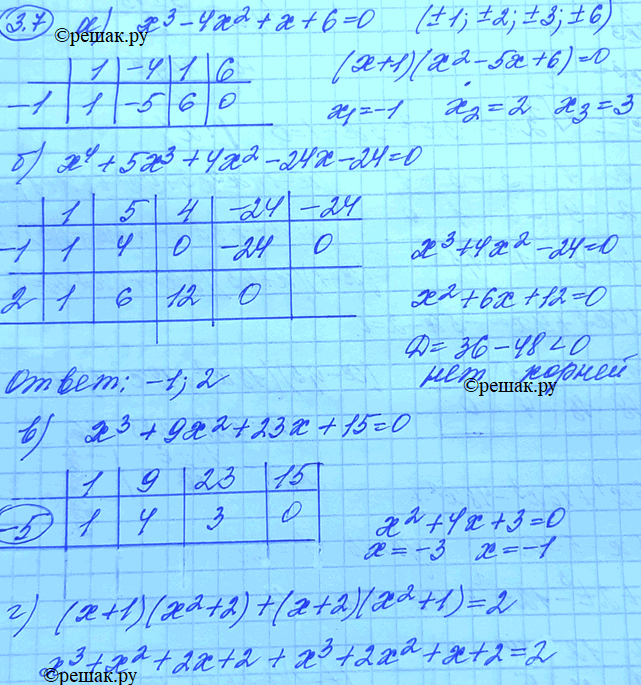 3.7 а) x³-4x²+x+6=0 (±1; ±2; ±3; ±6)
©решак.ру
1 | -4 | 1 | 6
(x+1)(x²-5x+6)=0
-1 | 1 | -5 | 6 | 0
x₁=-1 x₂=2 x₃=3
б) x⁴+5x³+4x²-24x-24=0
1 | 5 | 4 | -24 | -24
-1 | 1 | 4 | 0 | -24 | 0
x³+4x²-24=0
2 | 1 | 6 | 12 | 0
x²+6x+12=0
D=36-48<0
Ответ: -1; 2
нет корней
©решак.ру
в) x³+9x²+23x+15=0
1 | 9 | 23 | 15
-5 | 1 | 4 | 3 | 0
x²+4x+3=0
x=-3 x=-1
г) (x+1)(x²+2)+(x+2)(x²+1)=2
x³+x²+2x+2+x³+2x²+x+2=2
©решак.ру